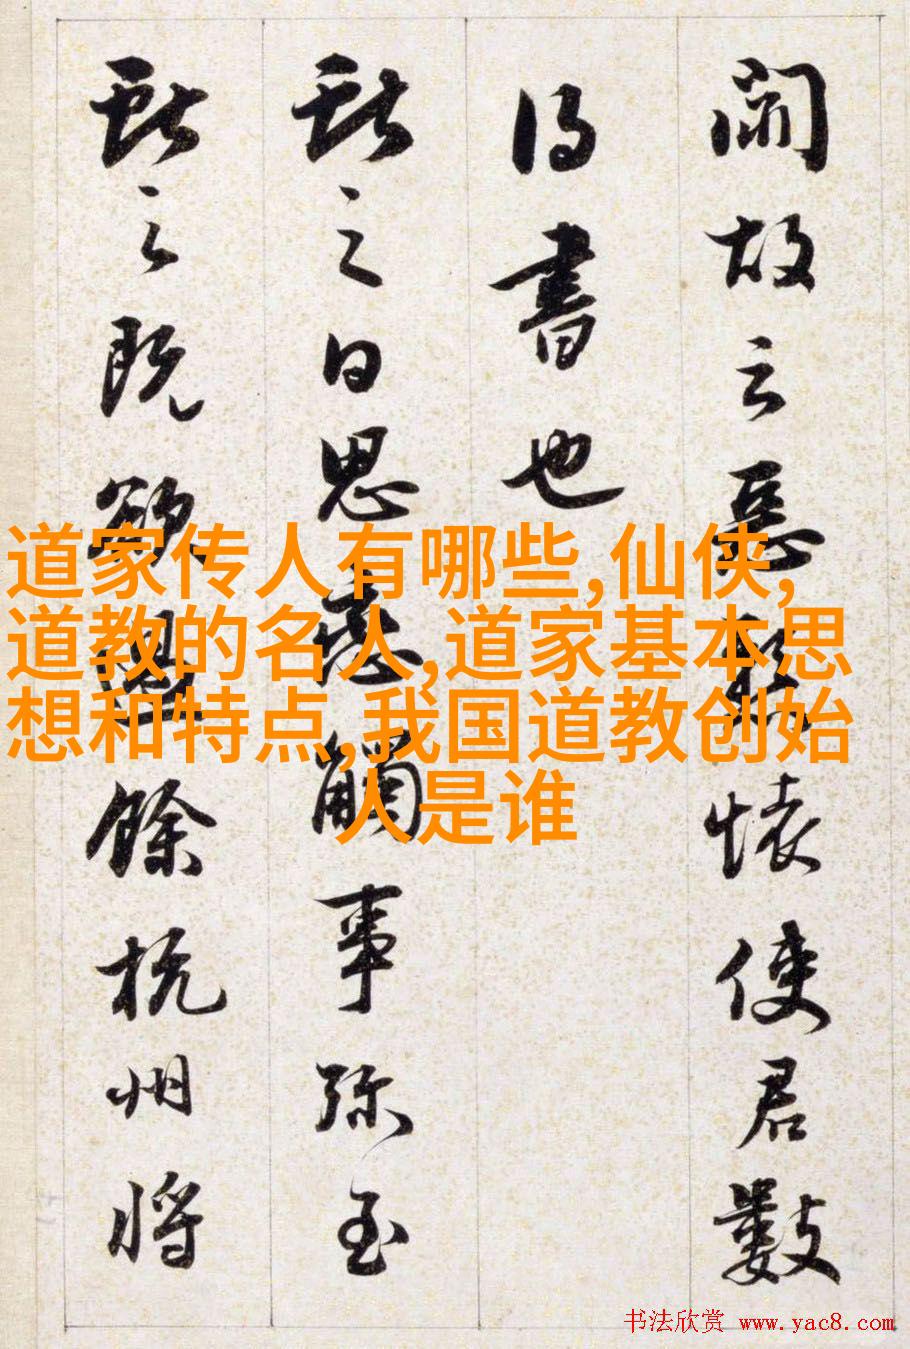 故云惡懸懷使君數
得書也
獻之日思戀觸事彌至
獻之既欲過餘杭州將
道家传人有哪些,仙侠,
道教的名人,道家基本思
想和特点,我国道教创始
人是谁
书法欣赏 www.yac8.com